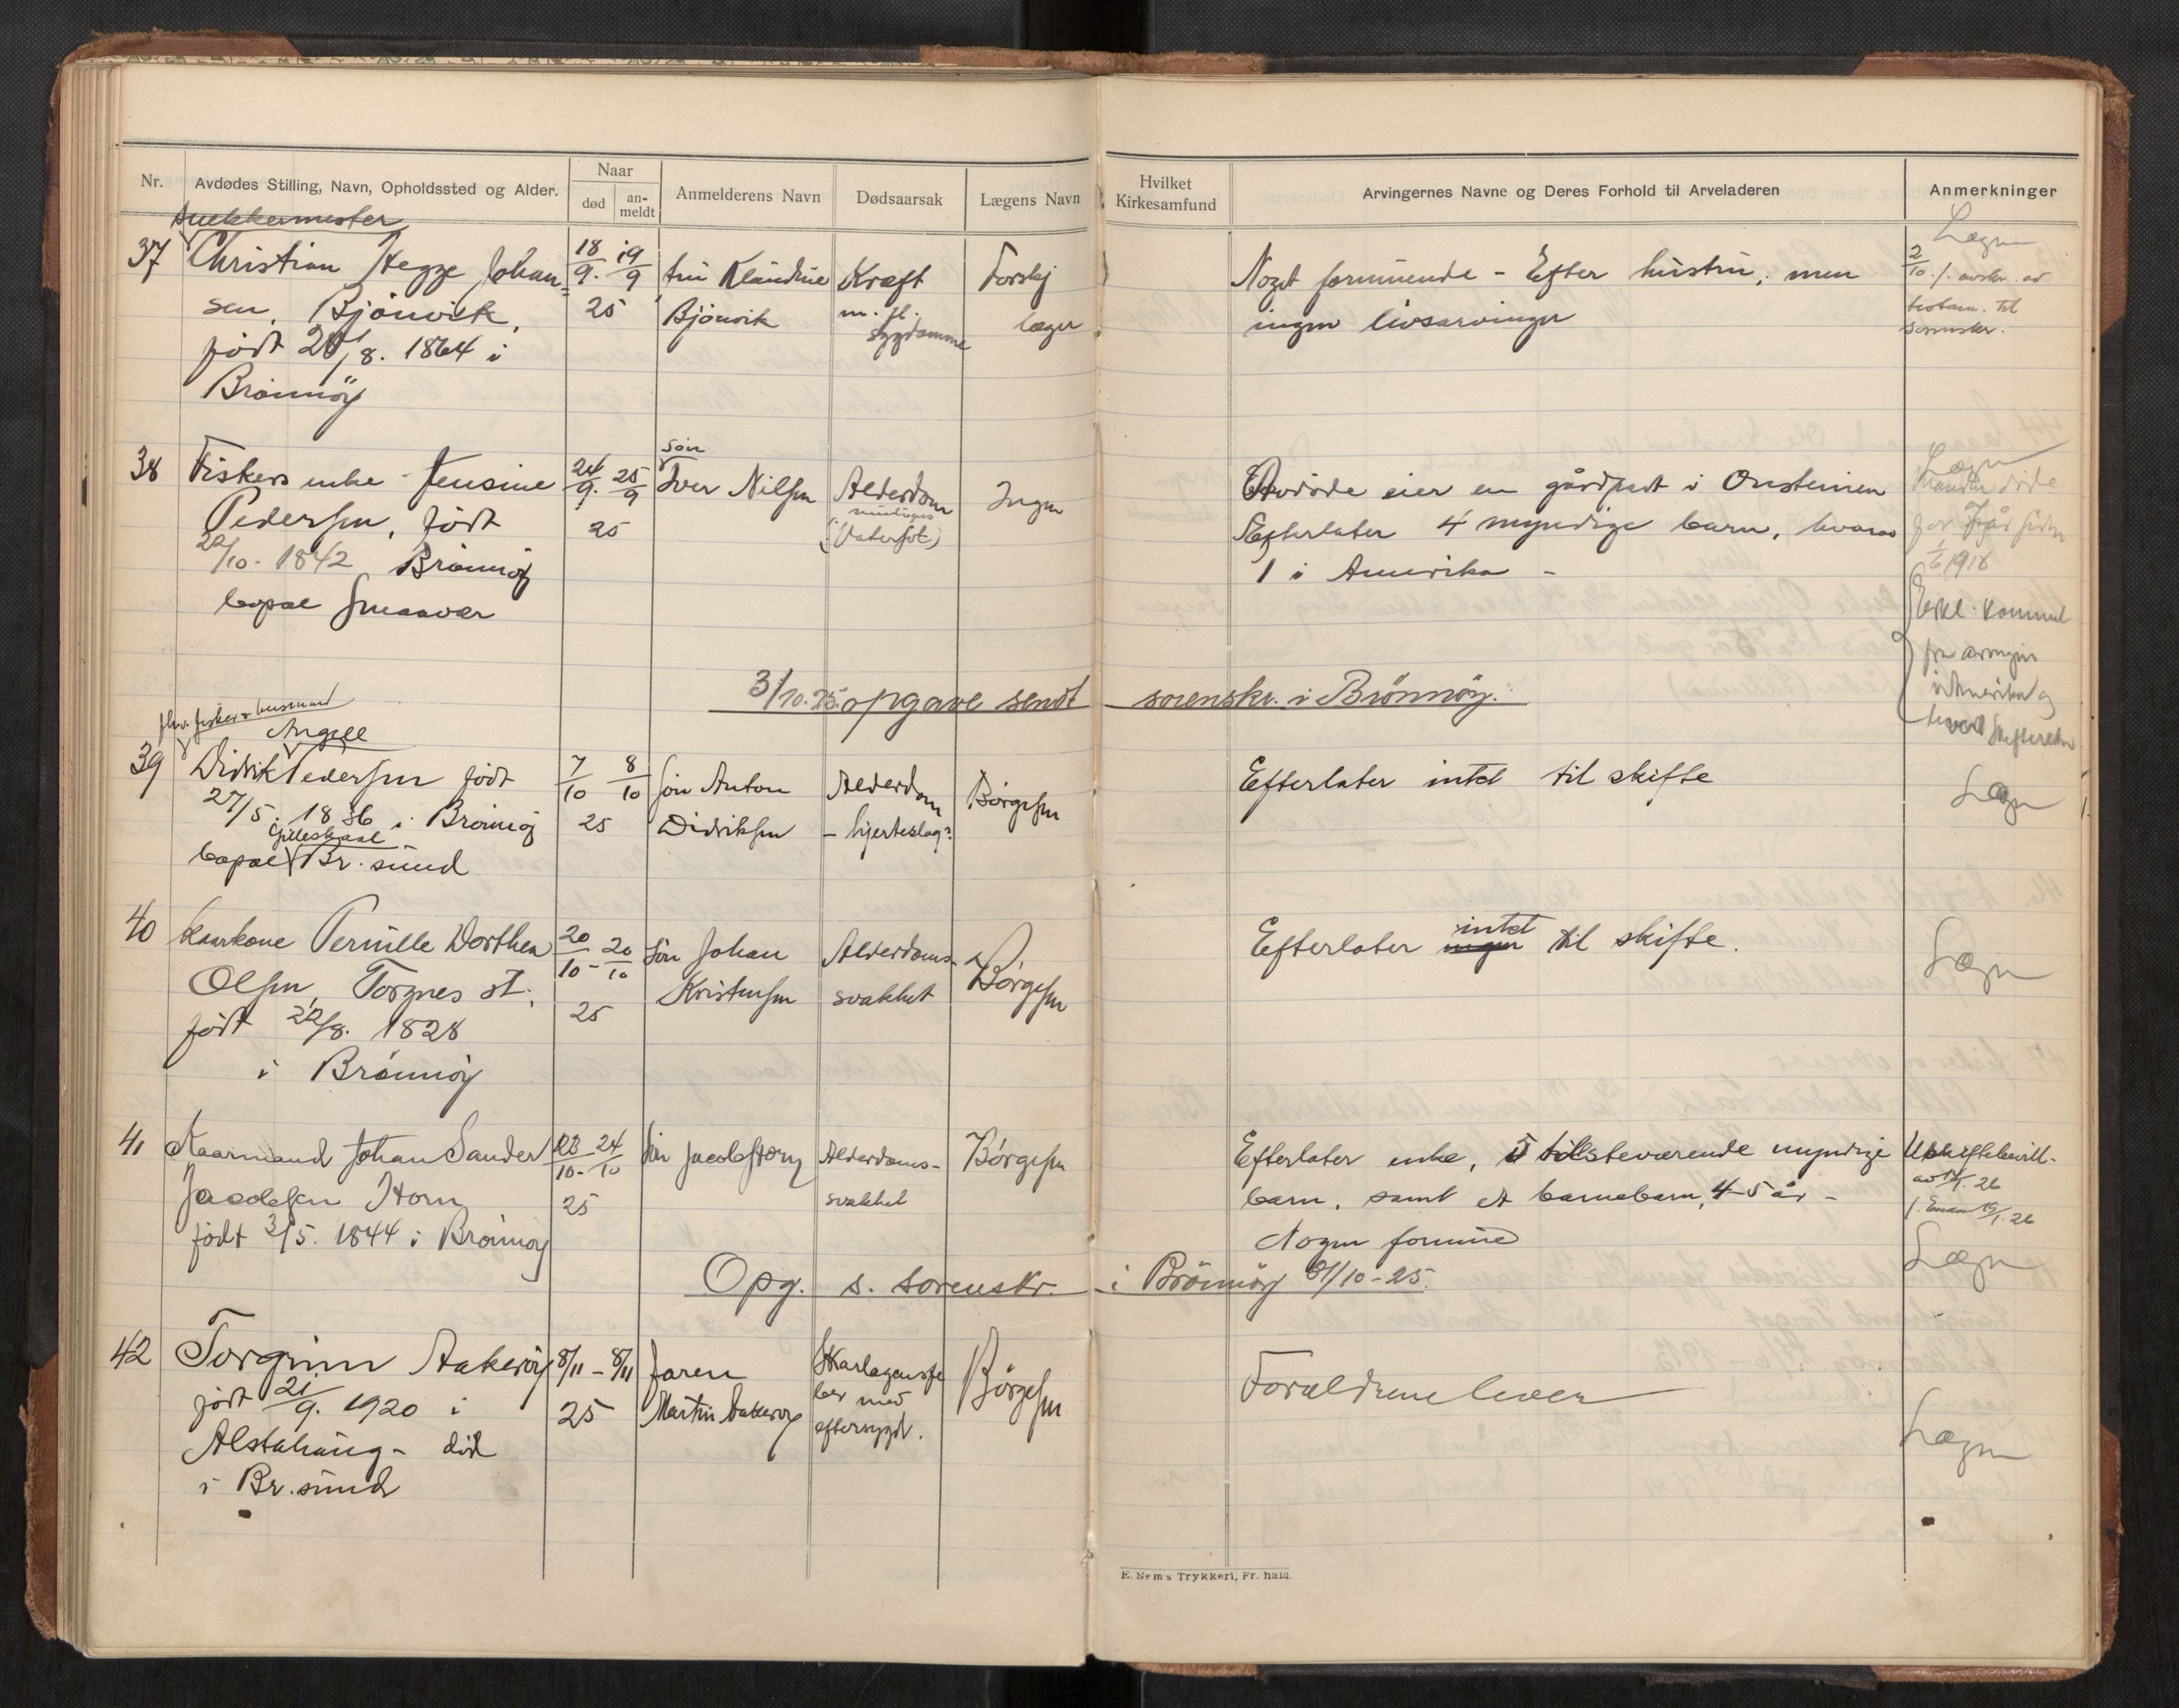 Nr.
Avdødes Stilling, Navn, Opholdssted og Alder.
Naar
død
an-
meldt
Anmelderens Navn
Dødsaarsak
Lægens Navn
Hvilket
Kirkesamfund
Arvingernes Navne og Deres Forhold til Arveladeren
Anmerkninger
37
Snekkermester
Christian Hegge Johan=
sen, Bjönvik,
født 20/8. 1864 i
Brønnöy
18/9. 19/9
25
fru Klaudine
Bjönvik
Kræft
m. fl.
sygdomme
Forskj
læger
Noget formuende - Efter hustru, men
ingen livsarvinger
Lægn
2/10. f. avskr. av
testam. til
sorenskr.
38
Fiskers enke Jensine
Pedersen, født
22/10. 1842 Brønnöy
bopæl Smaavær
24/9. 25/9
25
søn
Iver Nilsen
Alderdom
(Vatersot)
Ingen
Avdøde eier en gårdpart i Onsteinen
Efterlater 4 myndige barn, hvorav
1 i Amerika -
Lægn
Manden døde
for 7 år siden
1/6 1918
Erkl. kommet
fra arvingen
i Amerika og
3/10.25. opgave sendt sorenskr. i Brönnöy.
39
fhv. fisker & husmand
Angell
Didrik Pedersen født
27/5. 1836 i Brønnöy
Gilleskaal
bopæl Br. sund
7/10 8/10
25
søn Anton
Didriksen
Alderdom
- hjerteslag?
Børgesen
Efterlater intet til skifte
Lægn
40
Kaarkone Pernille Dorthea
Olsen, Torgnes st.,
født 22/8. 1828
i Brønnöy
20/10 - 20/10
25
søn Johan
Kristensen
Alderdoms-
svakhet
Børgesen
intet
Efterlater ingen til skifte.
Lægn
41
Kaarmand Johan Sander
Jacobsen Horn
født 3/5. 1844 i Brønnöy
23/10 - 24/10
25
søn Jacob Horn
Alderdoms-
svakhet
Børgesen
Efterlater enke, 5 tilstedeværende myndige
barn, samt et barnebarn, 4-5 år -
Nogen formue
Uskiftebevill.
av 19/1. 26
19/1. 26
Lægn
Opg. s. sorenskr. i Brönnöy 31/10-25.
42
Torgrim Aakerøy
født 21/9. 1920 i
Alstahaug - død
i Br. sund
8/11 - 8/11
25
faren
Martin Aakerøy
Skarlagensfe
ber med
eftersygd.
Børgesen
Forældrene lever
Lægn
E. Sem's Trykkeri, Fr. hald.